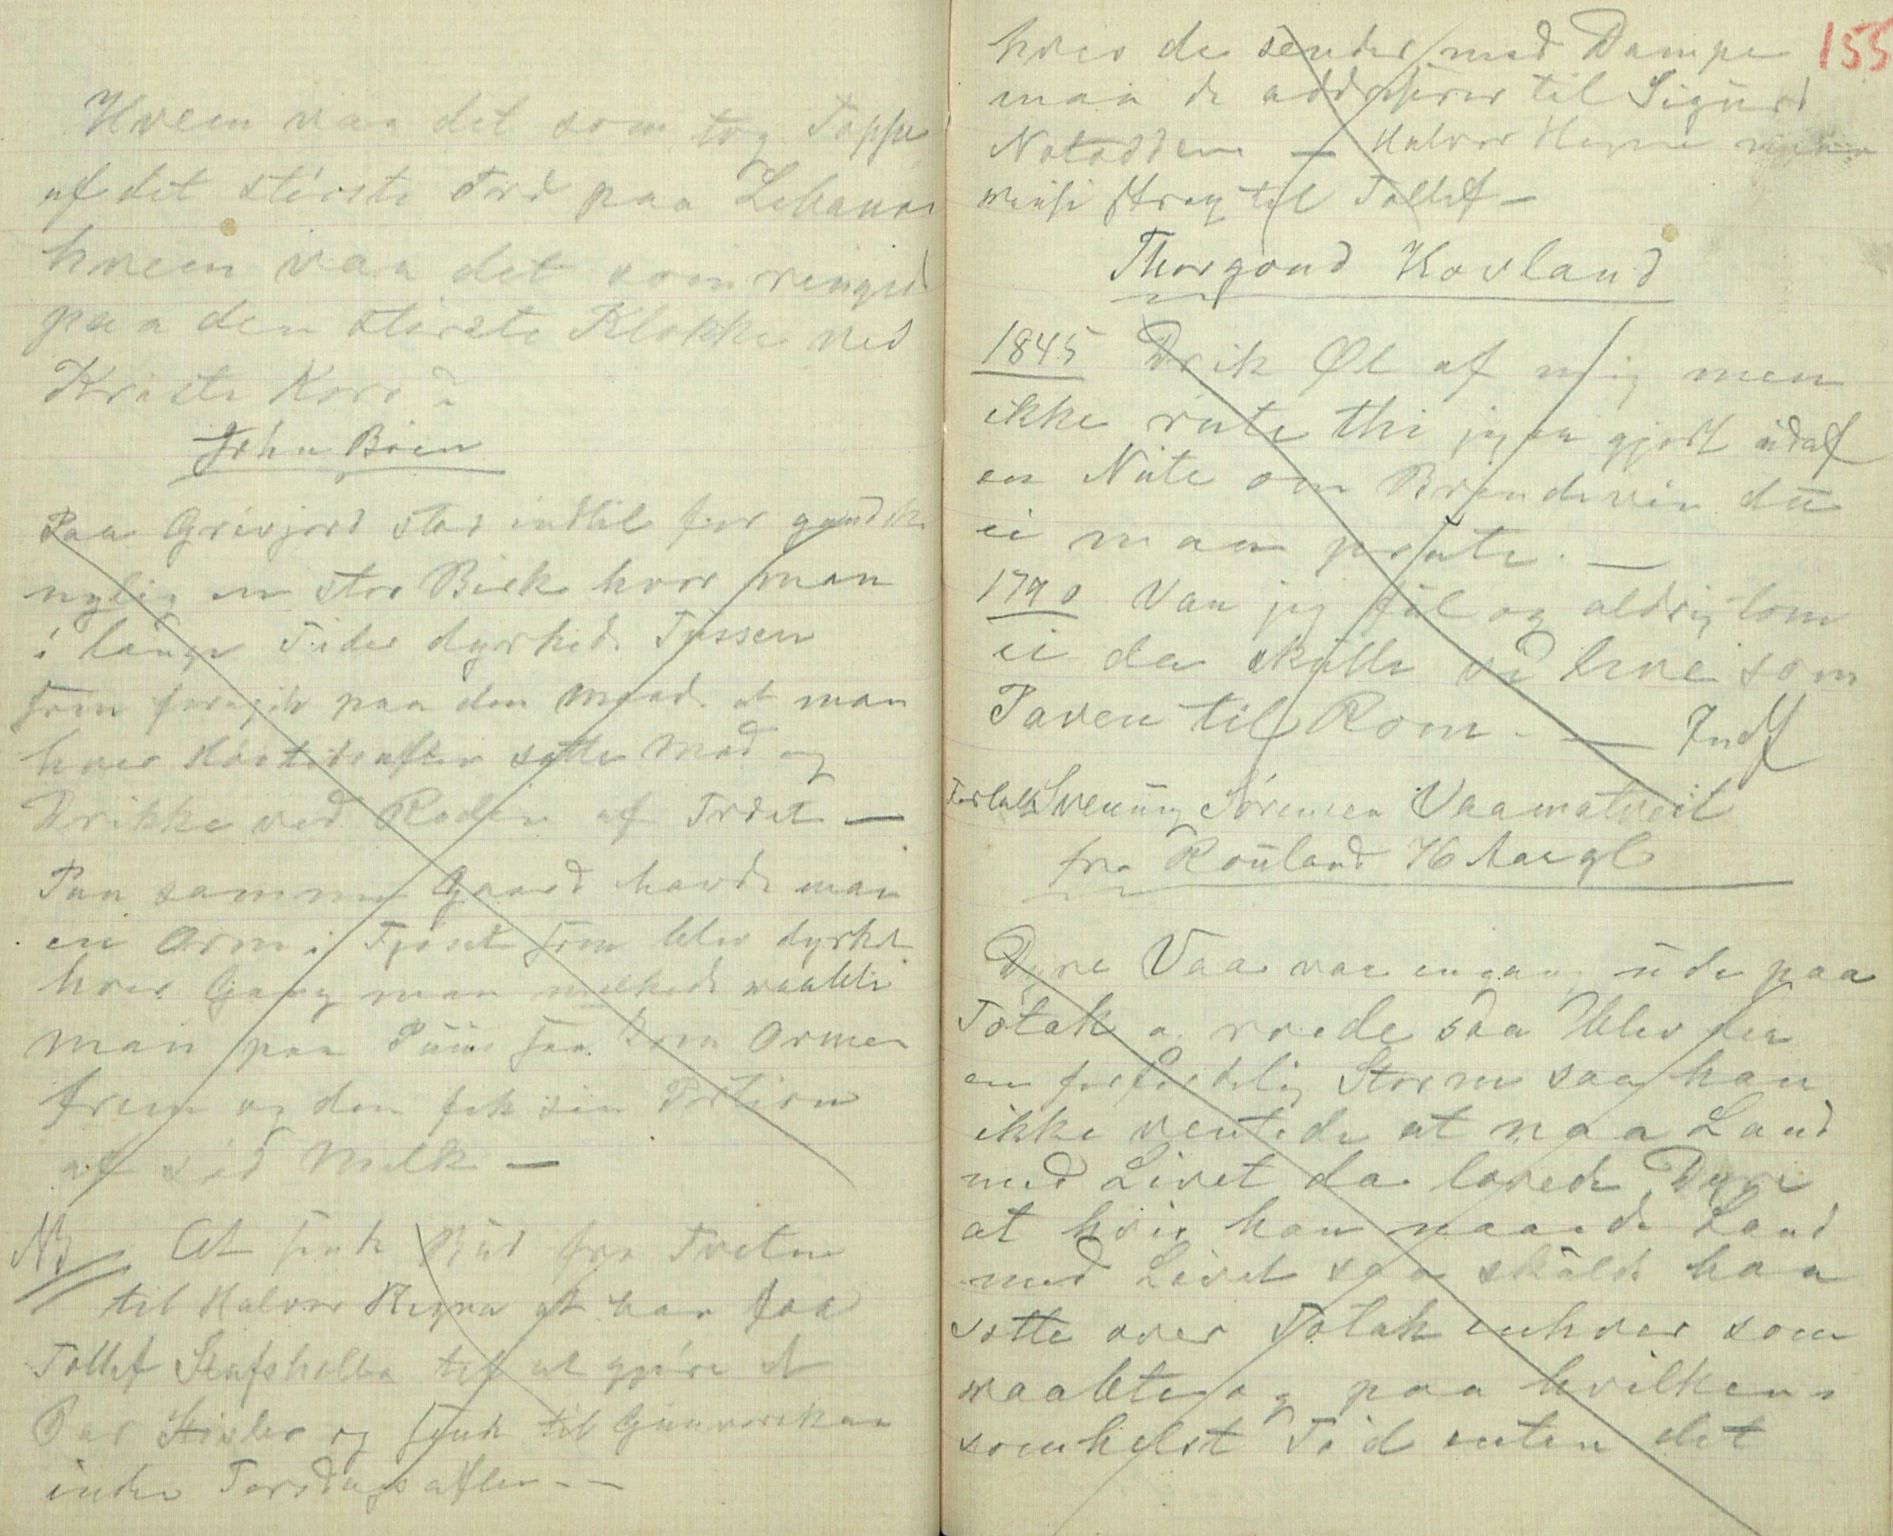 Hvem var det som tog Toppe
af det störste Træ paa Libanon
hvem var det som ringed
paa den störste Klokke ved
Kristi Kors?
John Böen
Paa Grivjord stod indtil for ganske
nylig en stor Birk hvor man
i lange Tider dyrkede Tussen
som foregik paa den Maade at man
hver Höitidsaften satte Mad og
Drikke ved Roden af Træet —
Paa samme Gaard havde man
en Orm i Fjöset som blev dyrket
hver Gang man melkede
man paa saa kom Ormen
frem og den fik sin Portion
af söd Melk —
NB At sende Bud fra Tveten
til Halvor Hegna at han faar
Tollef til at gjöre et
Par Stövler og sende til
inden Torsdagsaften —
155
hvis de sender med Dampe
maa de addresseres til Sigurd
Notodden — Halvor Hegna
strax til Tollef —
Thorgond Hovland
1845 Drik Øl af mig men
ikke rute thi jeg er gjort udaf
en Nute om Brændevin du
ei maa prute. —
1790 Var jeg ful og aldrig tom
ei da skulle vi leve som
Paven til Rom. — Indf
Fortalt Svenung Sörensen Vaamatveit
fra Rouland
Dyre Vaa var engang ude paa
Totak o roede saa blev der
en forfærdelig Storm saa han
ikke ventede at naa Land
med Livet da lovede Dyre
at hvis han naaede Land
med Livet saa skulde han
sætte over Totak enhver som
raabte og paa hvilken
somhelst Tid enten det